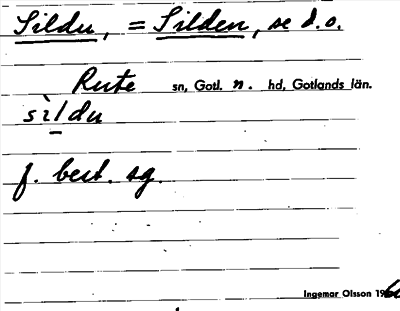 Sildu, = Silden, se d.o.
Rute sn, Gotl. n. hd, Gotlands län.
sìldu
f. best. sg.
Ingemar Olsson 1960